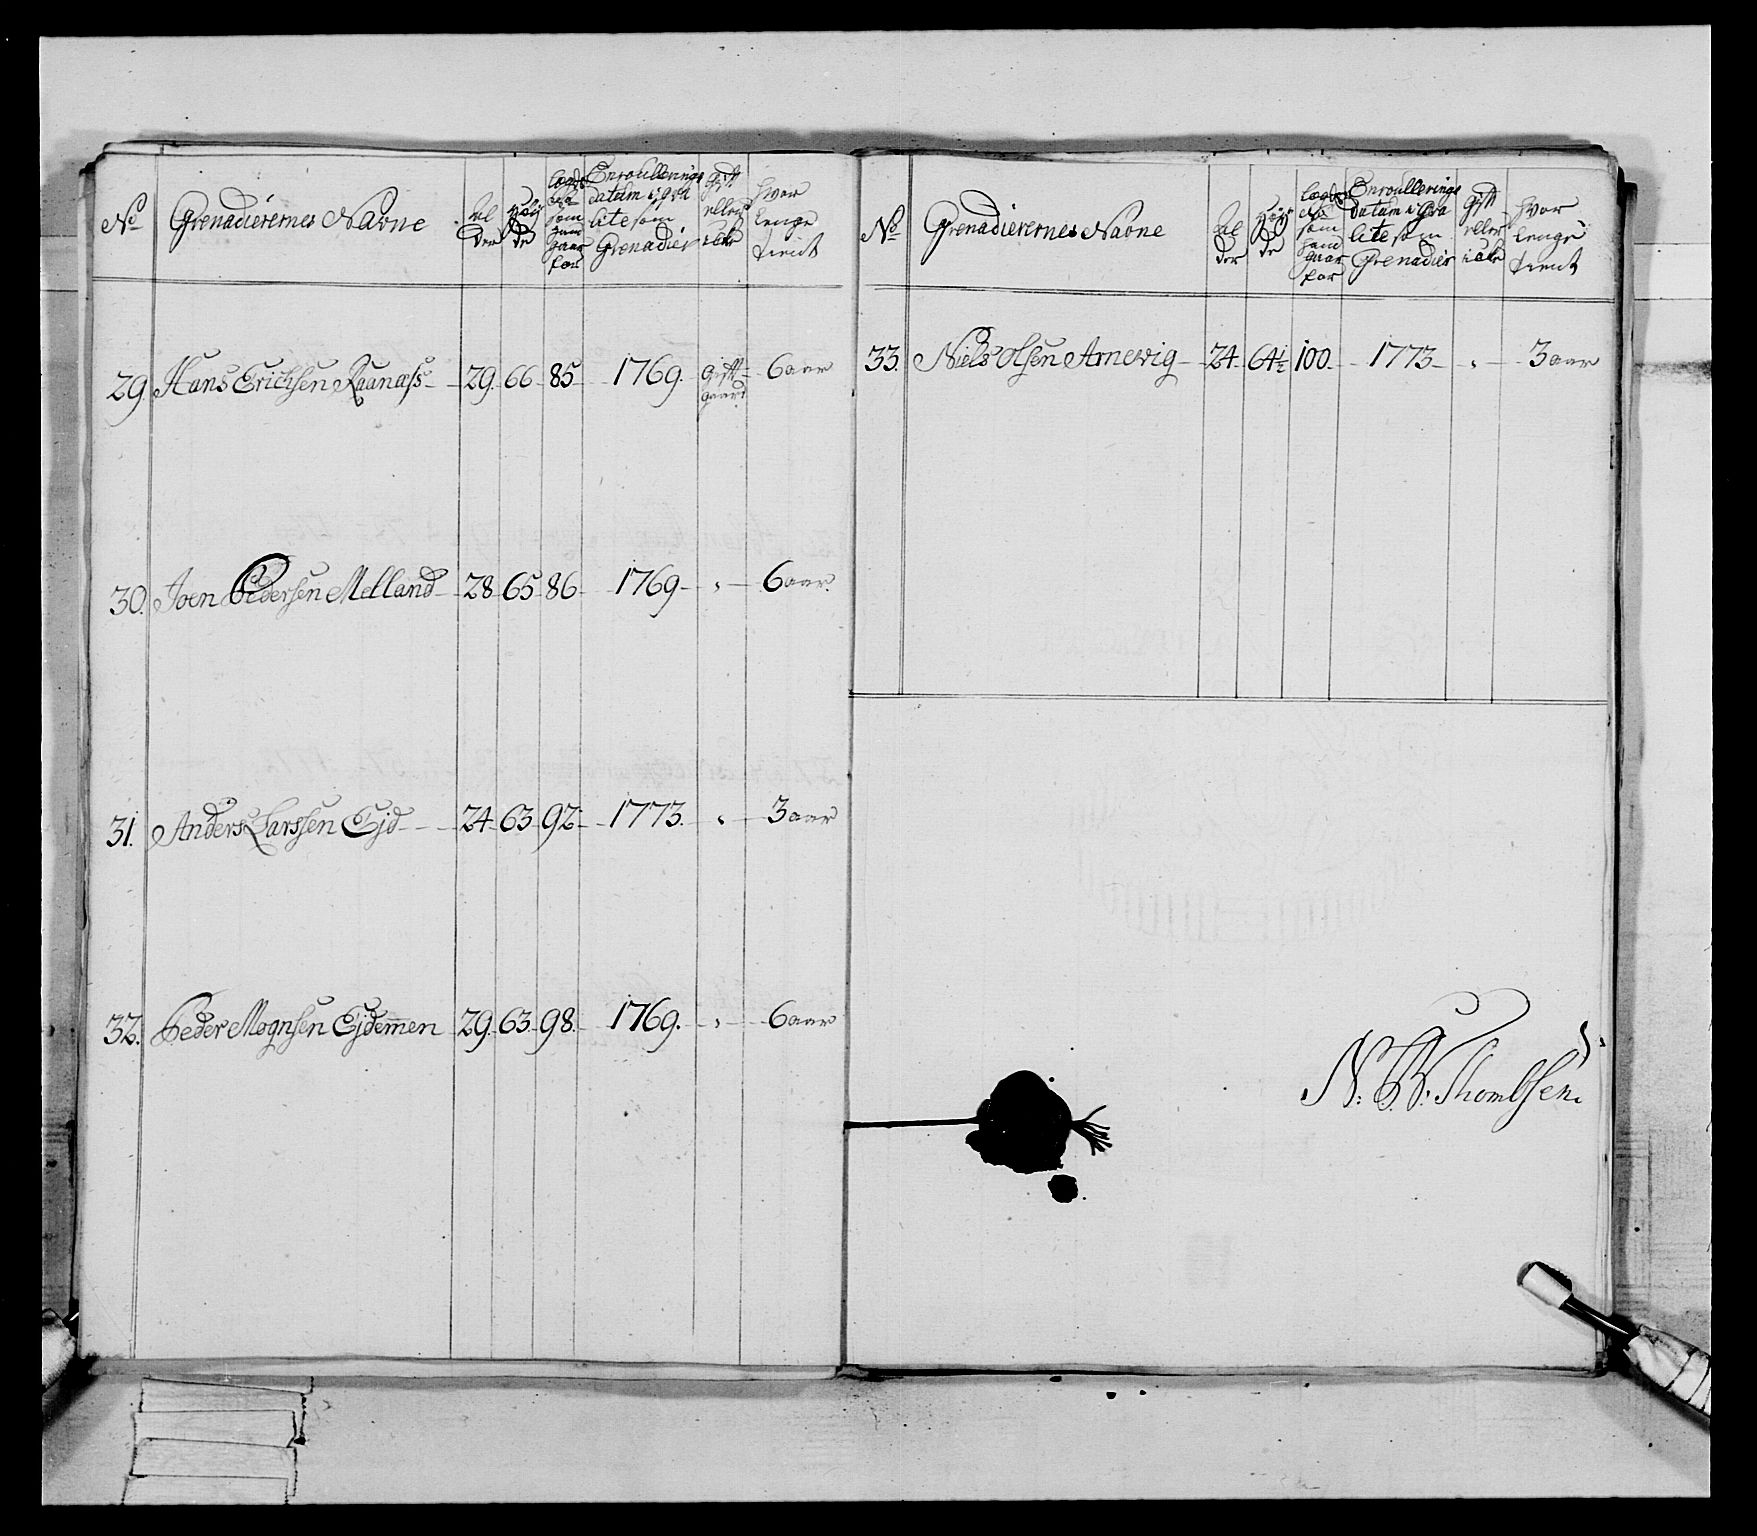 No Grenadierernes Navne Al der Høy de Lægds No som ham gaar for Enroullerings datum i qva lite som Grenadier Gift eller icke hvor lenge tient
29. Hans Erichsen Raanæss 29. 66 85 1769. Gift gaard 6 aar
30. Joen Pedersen Melland 28 65 86 1769 " 6 aar.
31. Anders Larssen Ejd 24 63 92 1773. " 3 aar
32. Peder Mognsen Ejdemen 29. 63. 98. 1769. " 6 aar
No Grenadierernes Navne Al der Høy de Lægds No som ham gaar for Enroullerings datum i qva lite som Grenadier Gift eller icke hvor lenge tient
33. Niels Olsen Arnevig 24. 64½ 100. 1773 " 3 aar
N: W. Thombsen.